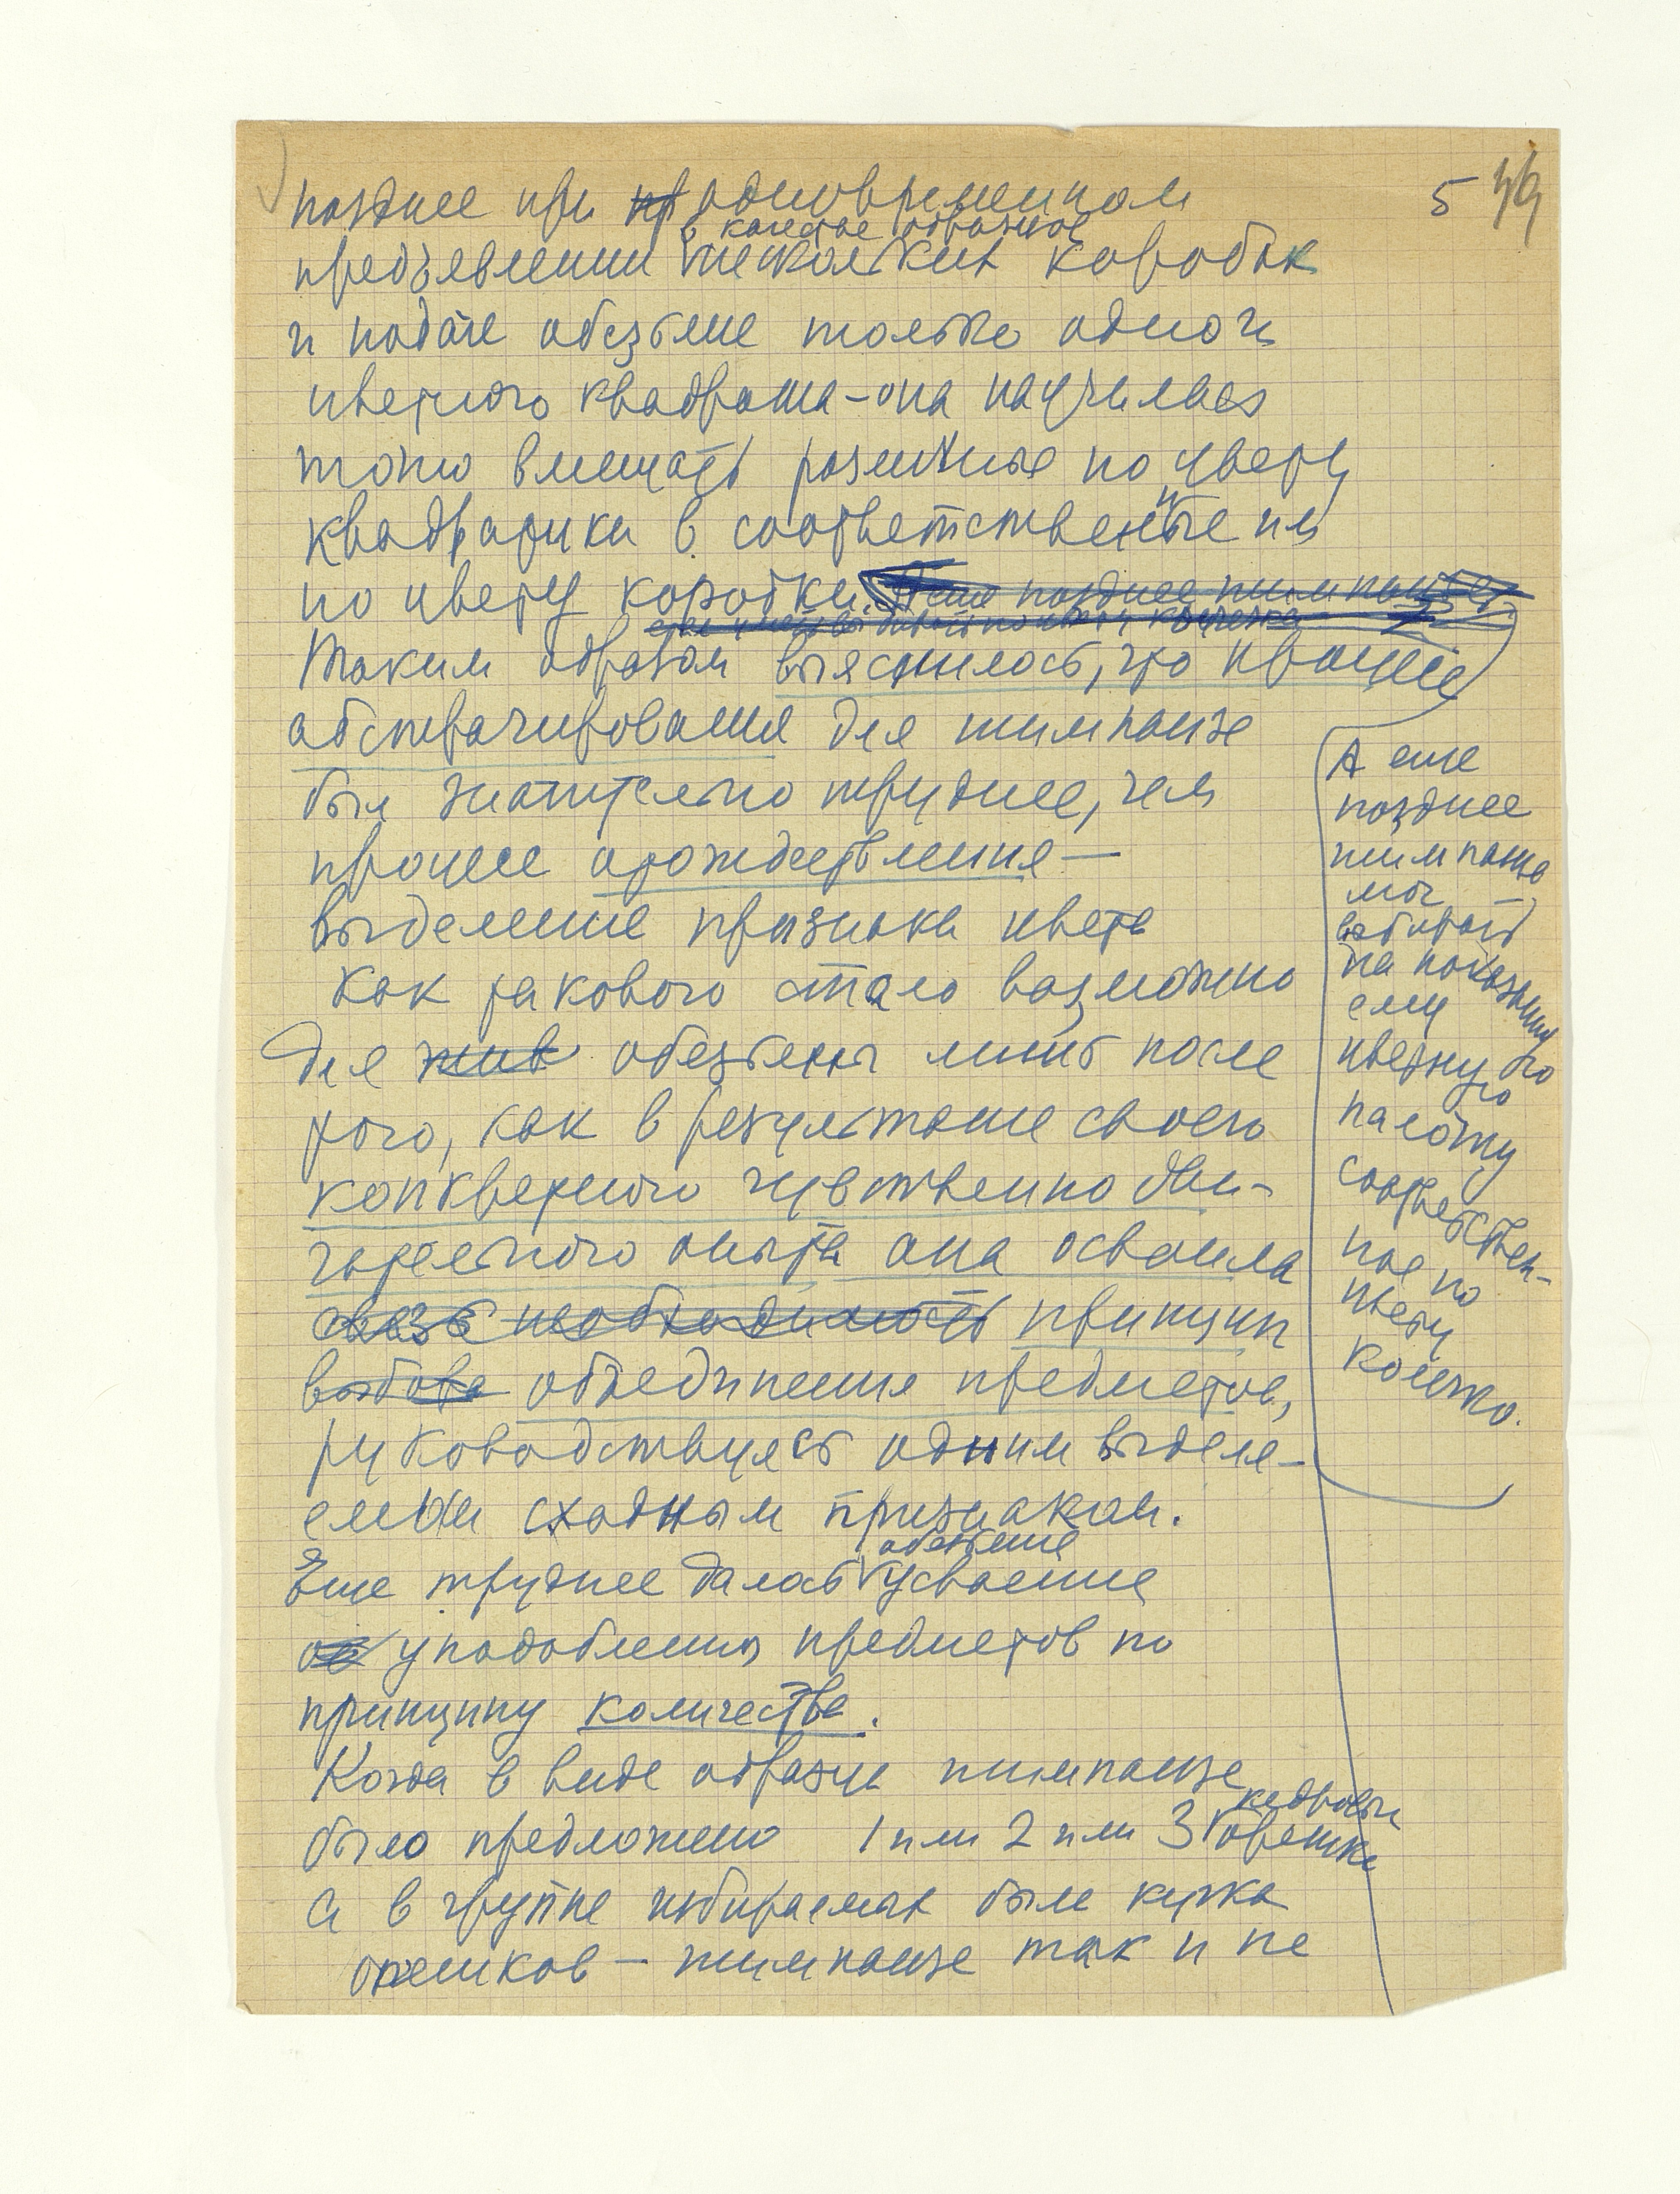 5 49
позднее при пр одновременном
в качестве образцов
предъявлении нескольких коробок
и подаче обезьяне только одного
цветного квадрата – она научилась
точно вмещать различные по цвету
квадратики в соответственные им
по цвету коробки. А еще позднее шимпанзе
Таким образом выяснилось, что процесс
абстрагирования для шимпанзе
был значительно труднее, чем
процесс отождествления —
выделение признака цвета
как такового стало возможно
для жив обезьяны лишь после
того, как в результате своего
конкретного чувственно дви-
гательного опыта она освоила
связь необходимость принцип
выбора объединения предметов,
руководствуясь одним выделя-
емым сходным признаком.
обезьяне
Еще труднее далось усвоение
об уподобления предметов по
принципу количества.
Когда в виде образца шимпанзе
кедровых
было предложено 1 или 2 или 3 орешка
а в группе избираемых были кучка
орешков — шимпанзе так и не
А еще
позднее
шимпанзе
мог
выбирать
на показанную
ему
цветную
палочку
соответствен-
ное по
цвету
колечко.